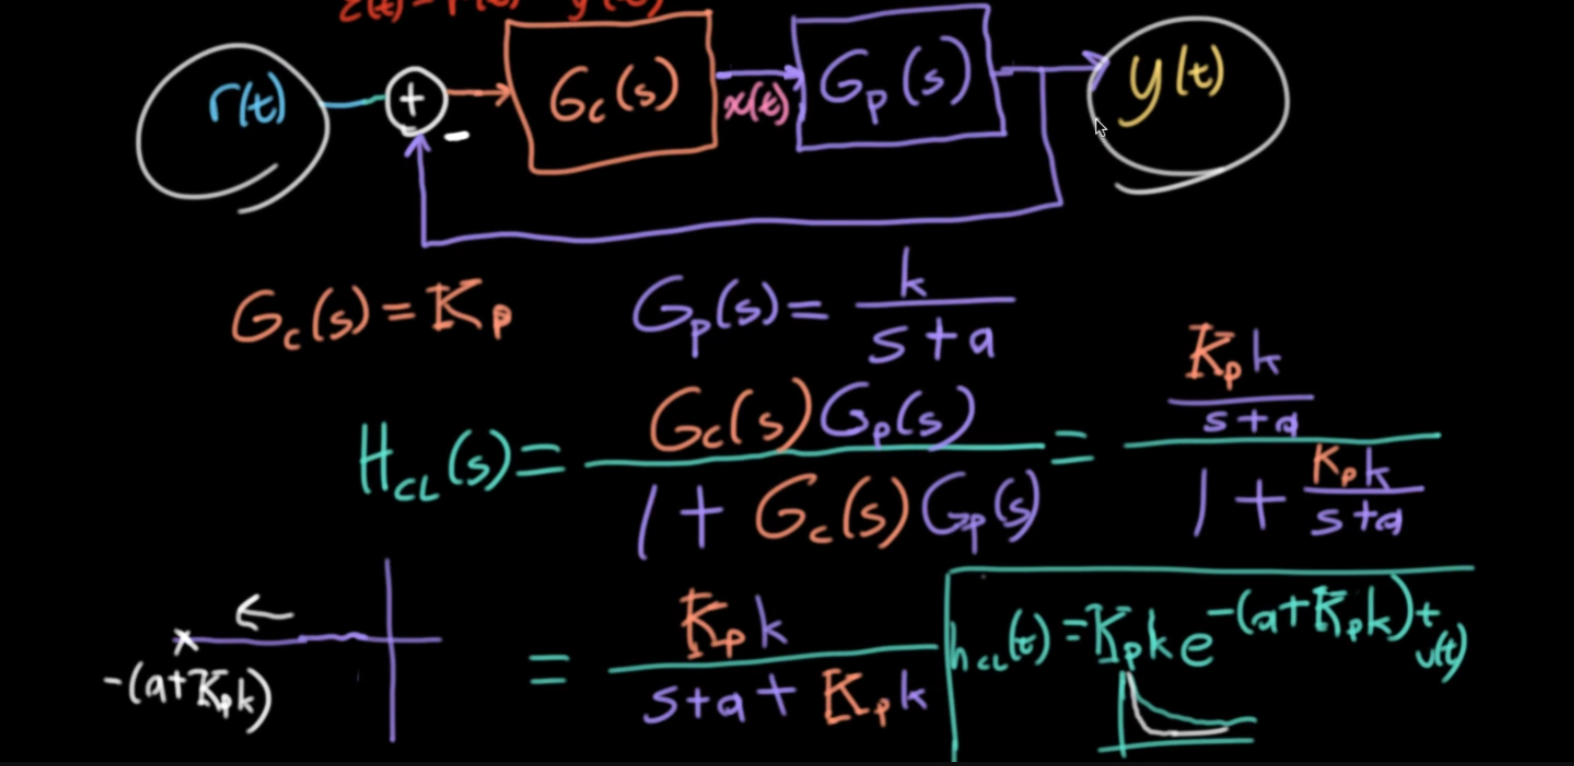 r(t) + - Gc(s) x(t) Gp(s) y(t)
Gc(s) = Kp Gp(s) = k / (s + a)
HCL(s) = Gc(s)Gp(s) / (1 + Gc(s)Gp(s)) = (Kp k / (s+a)) / (1 + Kp k / (s+a))
-(a+Kpk)
= Kp k / (s+a+Kp k)
hCL(t) = Kp k e^-(a+Kpk)t u(t)